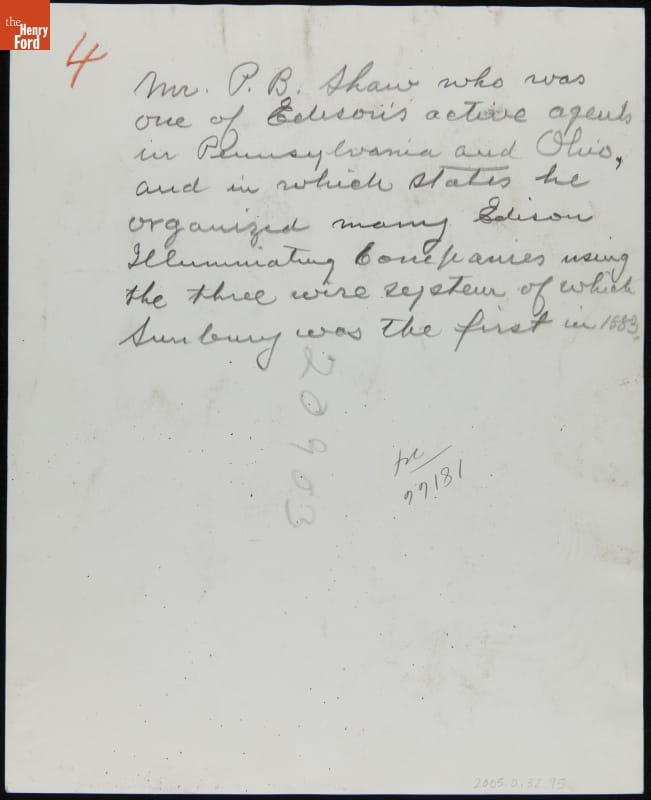 the
Henry
Ford
4
Mr. P. B. Shaw who was
one of Edison's active agents
in Pennsylvania and Ohio,
and in which states he
organized many Edison
Illuminating Companies using
the three wire system of which
Sunbury was the first in 1883.
20903
77181
2005.0.32.95